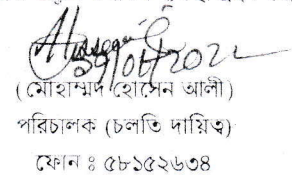 29/04/2022
(মোহাম্মদ হোসেন আলী)
পরিচালক (চলতি দায়িত্ব)
ফোন ঃ ৫৮১৫২৬৩৪